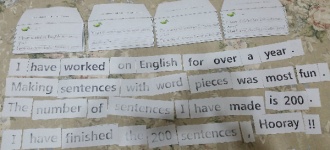 I have worked on English for over a year.
Making sentences with word pieces was most fun.
The number of sentences I have made is 200.
I have finished the 200 sentences, Hooray !!